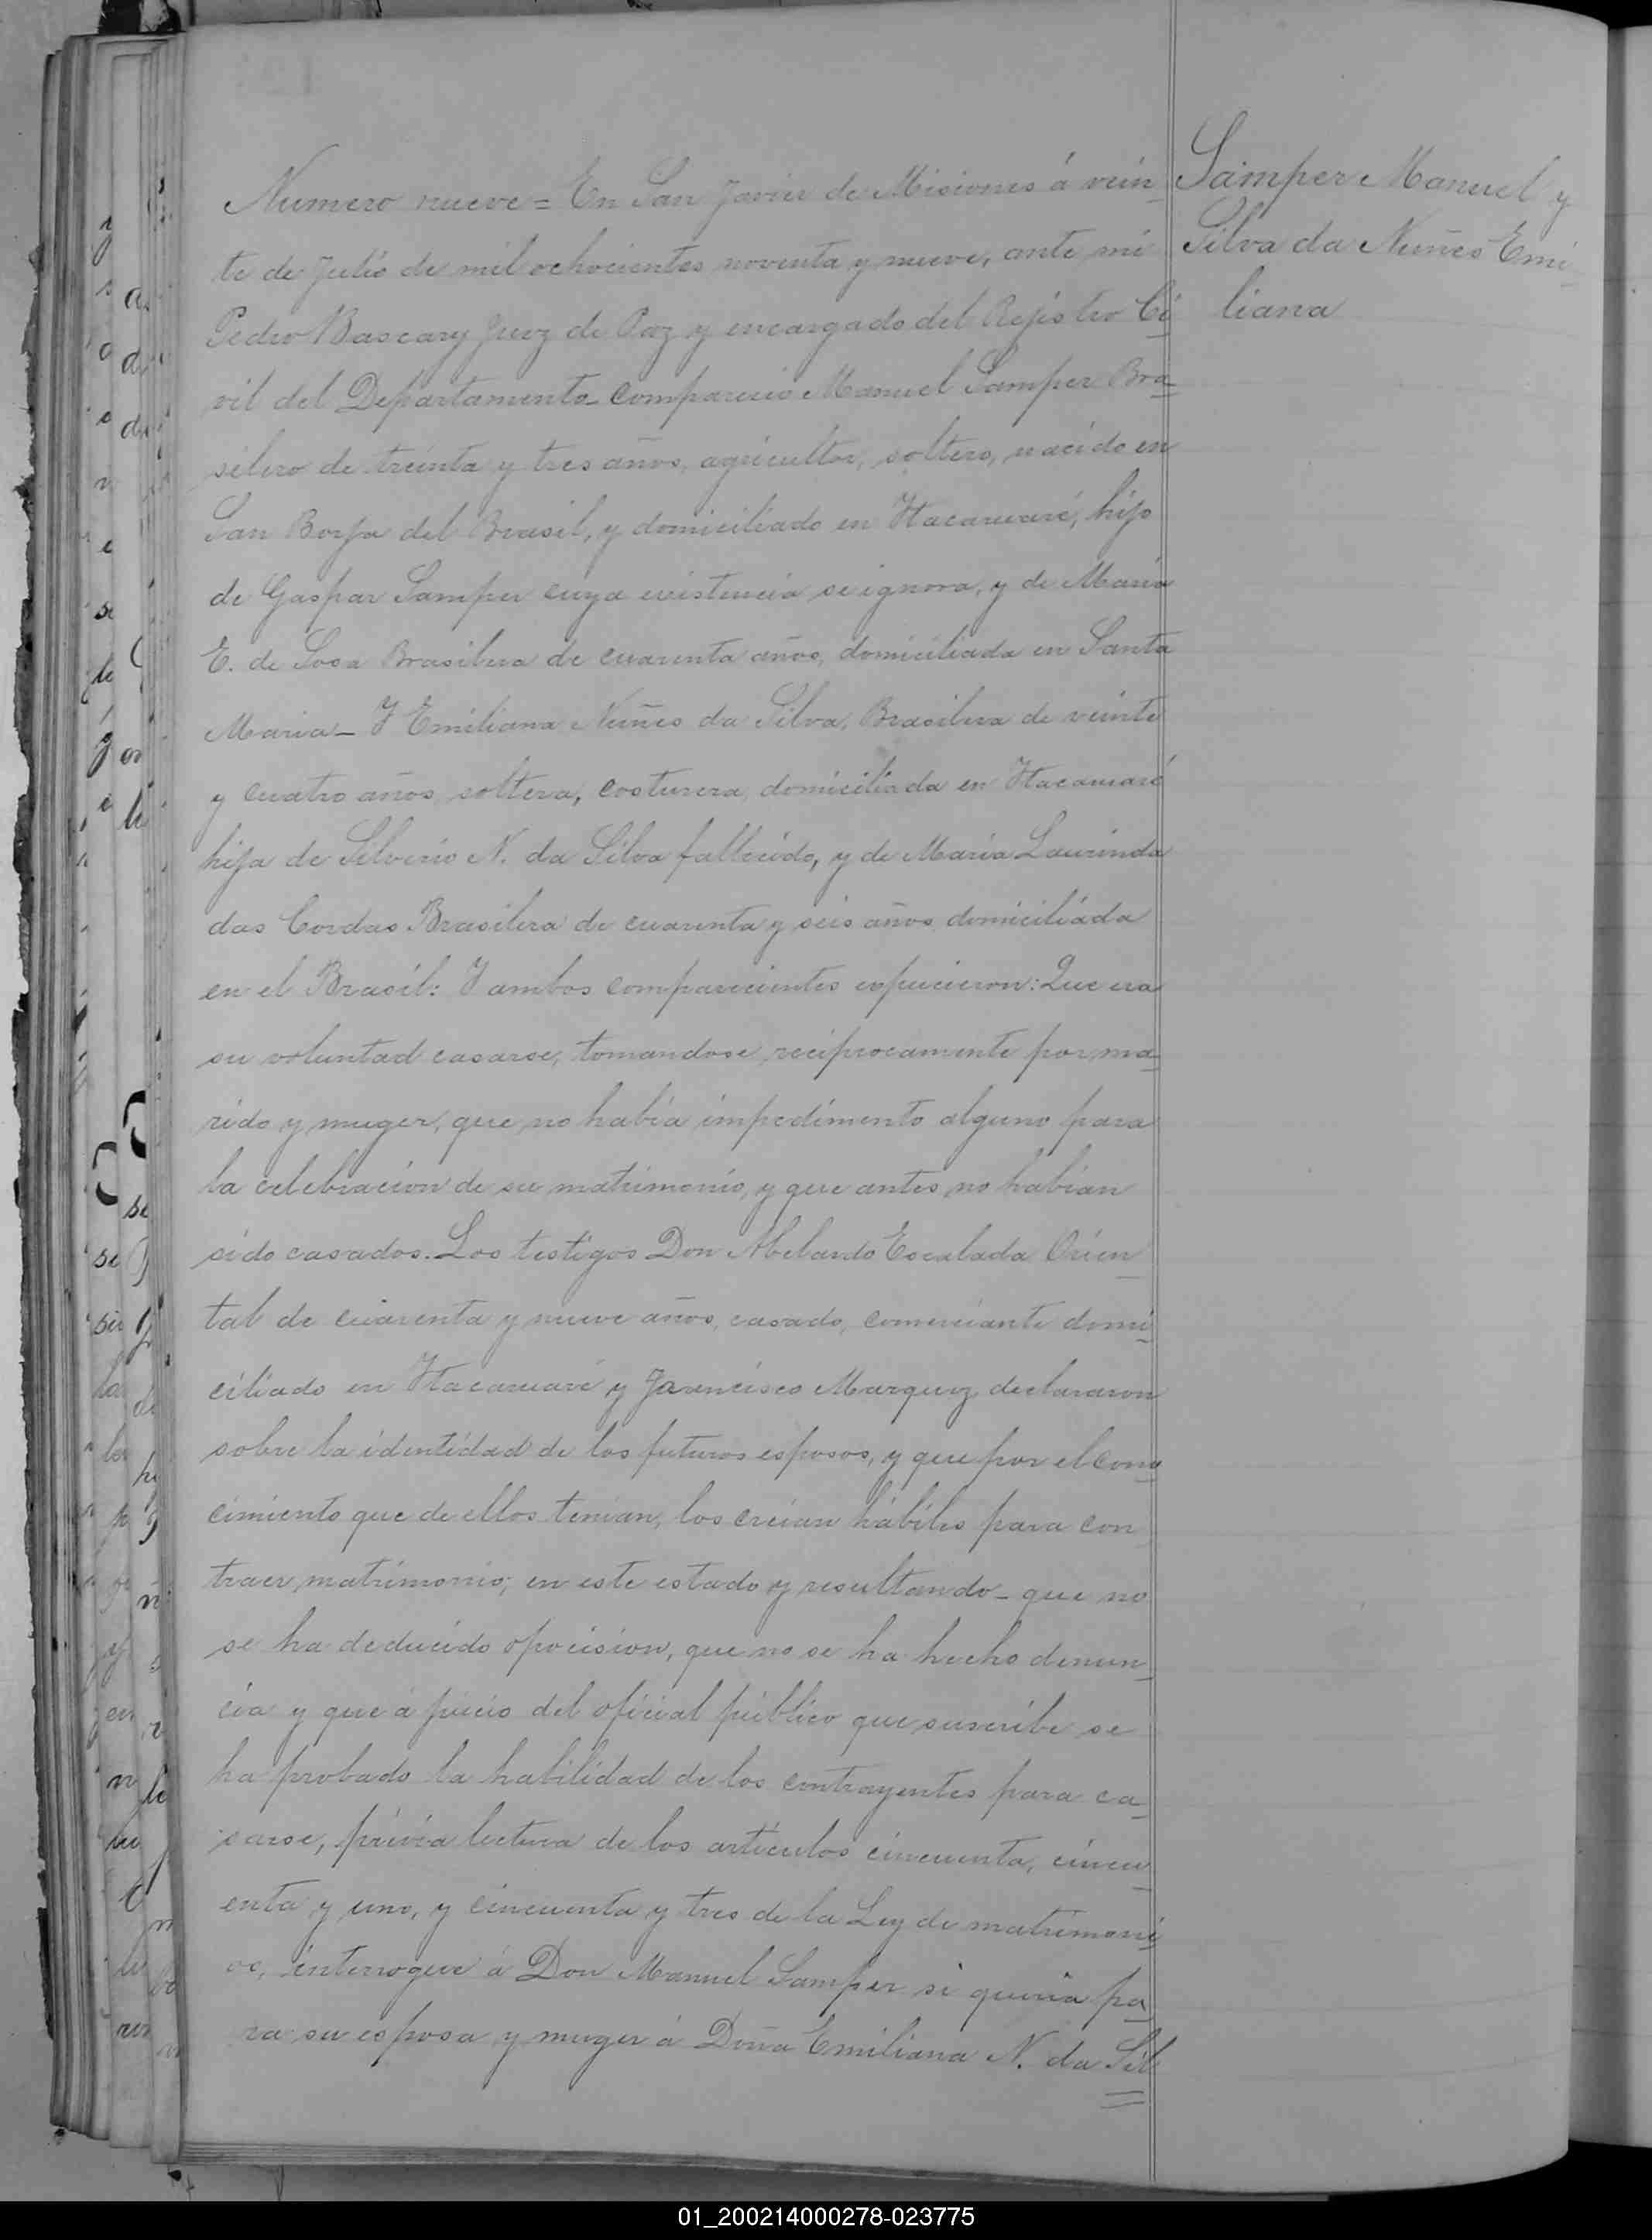 Samper Manuel y
Silva da Nuñes Emi-
liana
Numero nueve = En San Javier de Misiones á vein-
te de Julio de mil ochocientos noventa y nueve, ante mi
Pedro Bascary Juez de Paz y encargado del Rejistro Ci-
vil del Departamento - Comparecio Manuel Samper Bra-
silero de treinta y tres años, agricultor, soltero, nacido en
San Borja del Brasil, y domiciliado en Itacaruaré, hijo
de Gaspar Samper cuya existencia se ignora, y de Maria
E. de Sosa Brasilera de cuarenta años, domiciliada en Santa
Maria - Y Emiliana Nuñes da Silva, Brasilera de veinte
y cuatro años, soltera, costurera, domiciliada en Itacaruaré
hija de Silverio N. da Silva fallecido, y de Maria Laurinda
das Cordas Brasilera de cuarenta y seis años domiciliada
en el Brasil: Y ambos comparecientes espucieron: Que era
su voluntad casarse, tomandose reciprocamente por ma-
rido y muger, que no habia impedimento alguno para
la celebracion de su matrimonio, y que antes no habian
sido casados. Los testigos Don Abelardo Escalada Orien-
tal de cuarenta y nueve años, casado, comerciante domi-
ciliado en Itacaruaré y Farencisco Marquez declararon
sobre la identidad de los futuros esposos, y que por el cono-
cimiento que de ellos tenian, los creian hábiles para con-
traer matrimonio; en este estado y resultando - que no
se ha deducido opocision, que no se ha hecho denun-
cia y que á juicio del oficial público que suscribe se
ha probado la habilidad de los contrayentes para ca-
sarse, prévia lectura de los artículos cincuenta, cincu-
enta y uno, y cincuenta y tres de la Ley de matrimoni-
os, interrogue á Don Manuel Samper si queria pa-
ra su esposa y muger á Doña Emiliana N. da Sil=
01_200214000278-023775